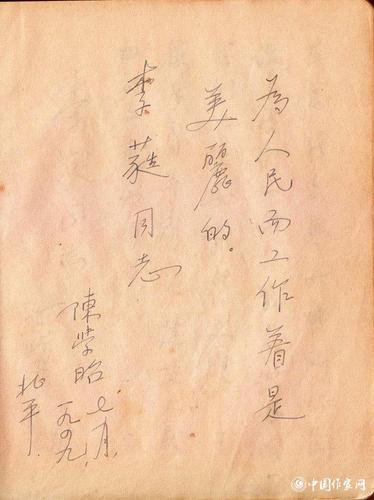 為人民而工作着是
美麗的。
李蕤同志
陳學昭
一九四九，七月，
北平．
中国作家网